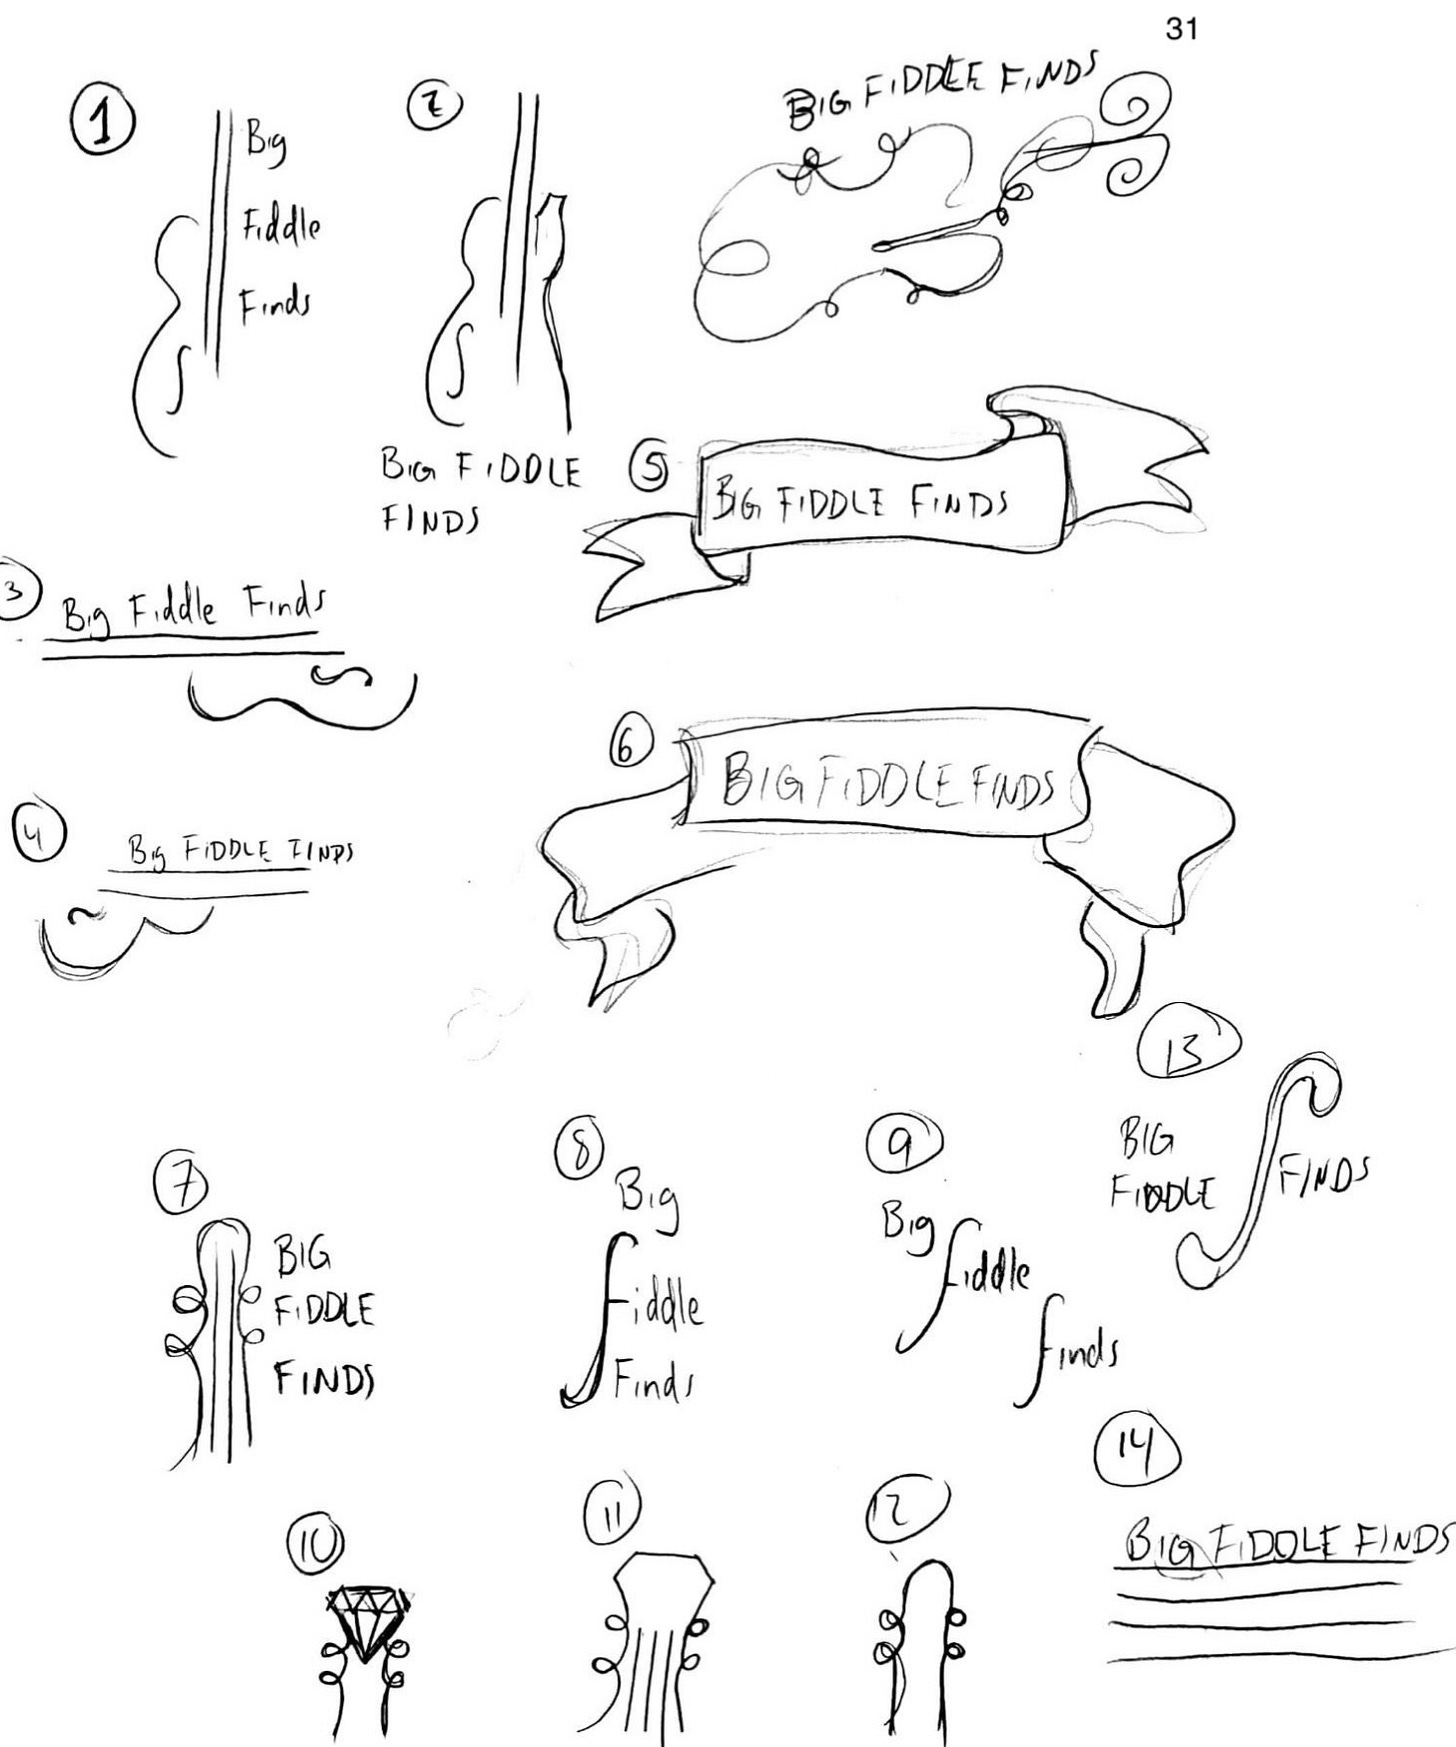 31
1
Big
Fiddle
Finds
2
BIG FIDDLE
FINDS
BIG FIDDLE FINDS
5
BIG FIDDLE FINDS
3
Big Fiddle Finds
6
BIG FIDDLE FINDS
4
Big FIDDLE FINDS
13
BIG
FIDDLE
FINDS
7
BIG
FIDDLE
FINDS
8
Big
fiddle
Finds
9
Big
fiddle
finds
10
11
12
14
BIG FIDDLE FINDS